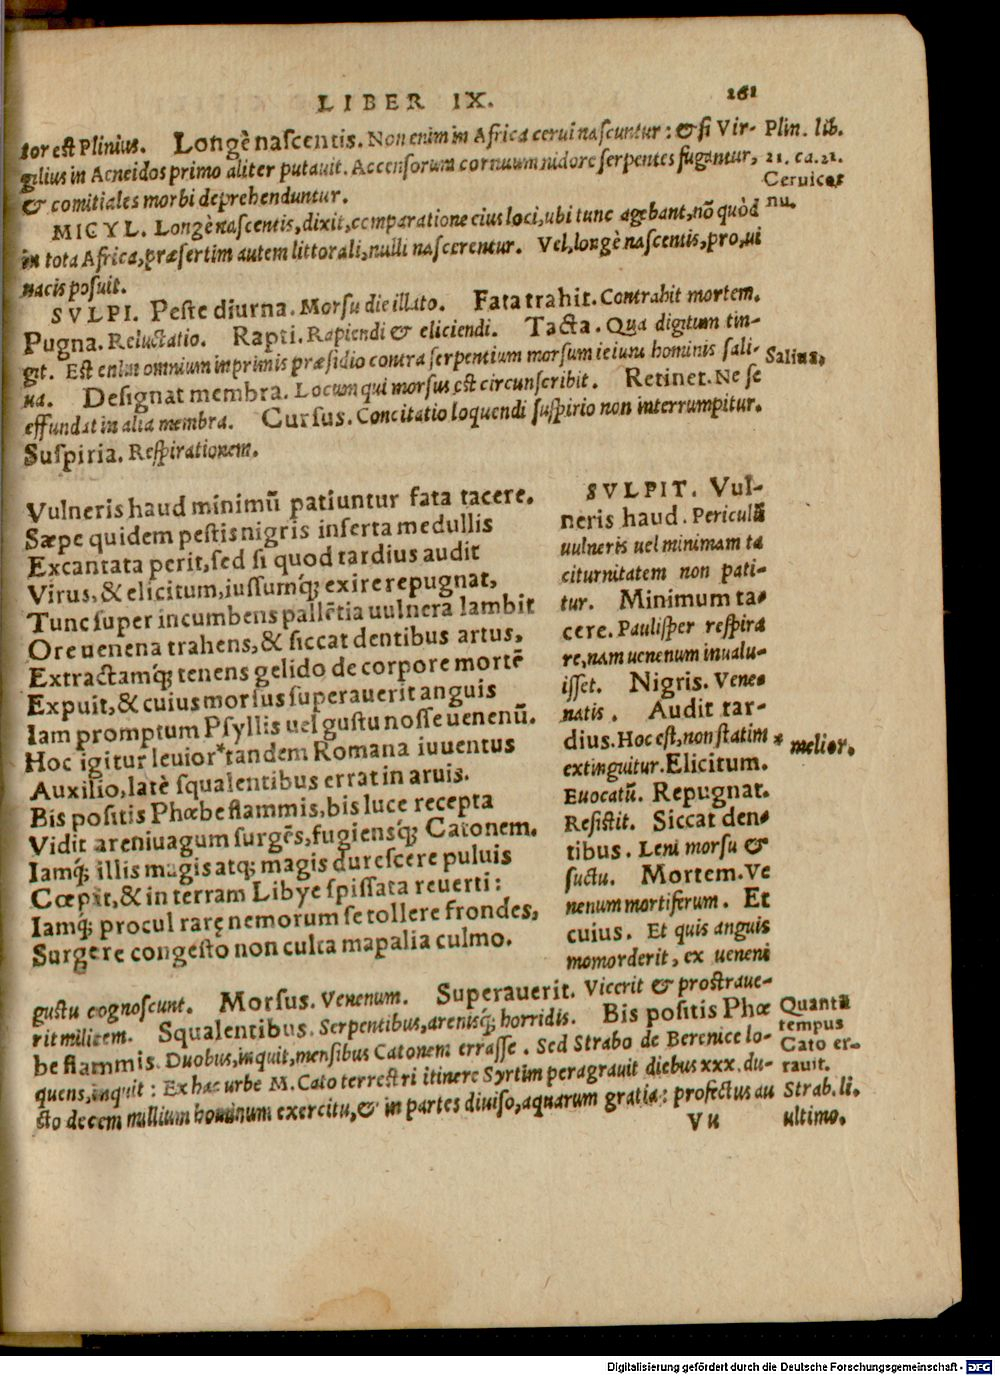 LIBER IX. 261
tor est Plinius. Longè nascentis. Non enim in Africa cerui nascuntur: & si Vir-
gilius in Aeneidos primo aliter putauit. Accensorum cornuum nidore serpentes fugantur,
& comitiales morbi deprehenduntur.
Plin. lib.
21. ca. 21.
Ceruicor
nu.
MICYL. Longè nascentis, dixit, comparatione eius loci, ubi tunc agebant, nõ quòd
in tota Africa, præsertim autem littorali, nulli nascerentur. Vel, longè nascentis, pro, ui
nacis posuit.
SVLPI. Peste diurna. Morsu die illato. Fata trahit. Contrahit mortem.
Pugna. Reluctatio. Rapti. Rapiendi & eliciendi. Tacta. Qua digitum tin-
git. Est enim omnium inprimis præsidio contra serpentium morsum ieiuni hominis sali-
ua. Designat membra. Locum qui morsus est circunscribit. Retinet. Ne se
effundat in alia membra. Cursus. Concitatio loquendi suspirio non interrumpitur.
Suspiria. Respirationem.
Saliua,
Vulneris haud minimũ patiuntur fata tacere.
Sæpe quidem pestis nigris inserta medullis
Excantata perit, sed si quod tardius audit
Virus, & elicitum, iussumq́; exire repugnat,
Tunc super incumbens pallẽtia uulnera lambit
Ore uenena trahens, & siccat dentibus artus,
Extractamq́; tenens gelido de corpore mortẽ
Expuit, & cuius morsus superauerit anguis
Iam promptum Psyllis uel gustu nosse uenenũ.
Hoc igitur leuior* tandem Romana iuuentus
Auxilio, latè squalentibus errat in aruis.
Bis positis Phœbe flammis, bis luce recepta
Vidit areniuagum surgẽs, fugiensq́; Catonem.
Iamq́; illis magis atq; magis durescere puluis
Cœpit, & in terram Libye spissata reuerti:
Iamq́; procul rarę nemorum se tollere frondes,
Surgere congesto non culta mapalia culmo.
SVLPIT. Vul-
neris haud. Periculũ
uulneris uel minimam ta
citurnitatem non pati-
tur. Minimum ta-
cere. Paulisper respira
re, nam uenenum inualu-
isset. Nigris. Vene-
natis. Audit tar-
dius. Hoc est, non statim
extinguitur. Elicitum.
Euocatũ. Repugnat.
Resistit. Siccat den-
tibus. Leni morsu &
suctu. Mortem. Ve
nenum mortiferum. Et
cuius. Et quis anguis
momorderit, ex ueneni
* melior.
gustu cognoscunt. Morsus. Venenum. Superauerit. Vicerit & prostraue-
rit militem. Squalentibus. Serpentibus, arenisq́; horridis. Bis positis Phœ
be flammis. Duobus, inquit, mensibus Catonem errasse. Sed Strabo de Berenice lo-
quens, inquit: Ex hac urbe M. Cato terrestri itinere Syrtim peragrauit diebus xxx. du-
cto decem millium hominum exercitu, & in partes diuiso, aquarum gratia: profectus au
Vu
Quantũ
tempus
Cato er-
rauit.
Strab. li.
ultimo.
Digitalisierung gefördert durch die Deutsche Forschungsgemeinschaft - DFG